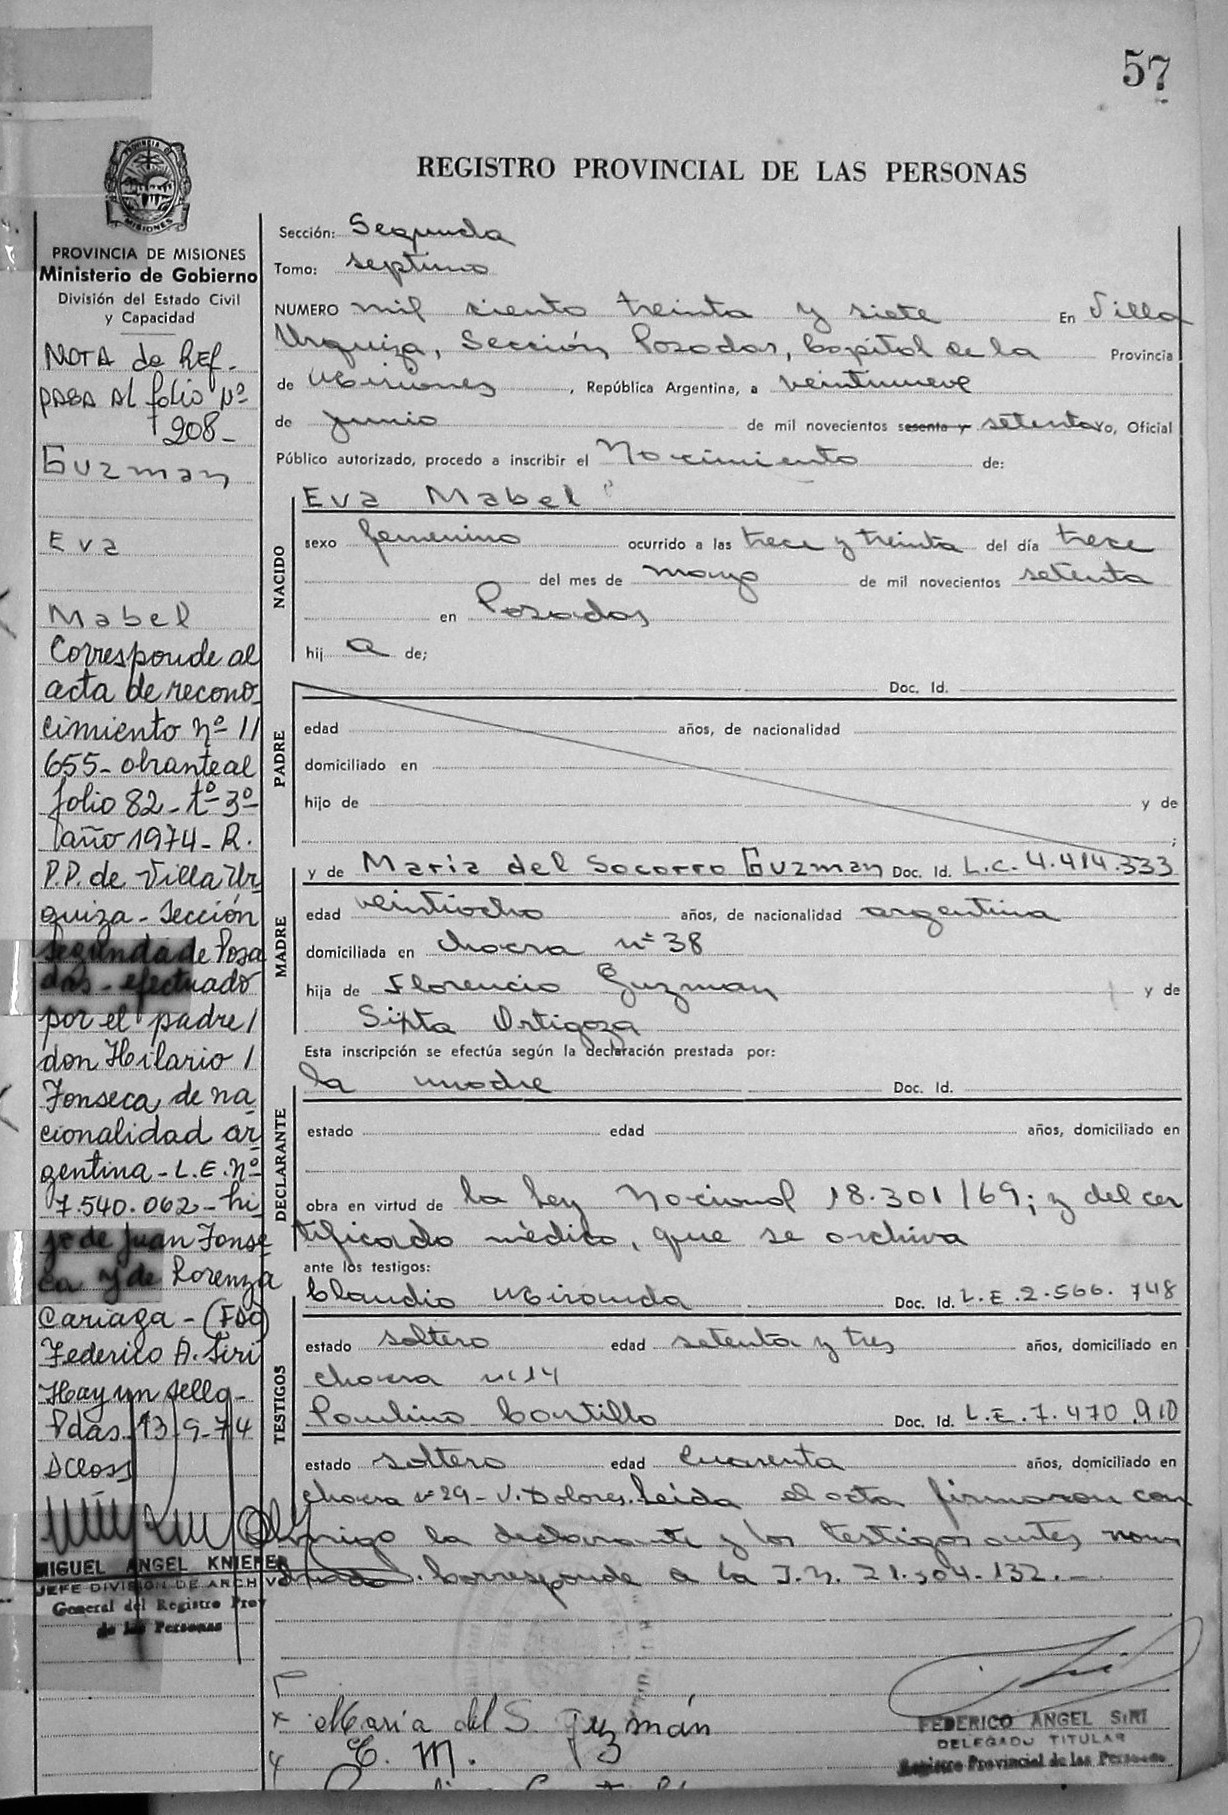 57
REGISTRO PROVINCIAL DE LAS PERSONAS
PROVINCIA DE
MISIONES
PROVINCIA DE MISIONES
Ministerio de Gobierno
División del Estado Civil
y Capacidad
NOTA de REF.
PASA AL folio Nº
208-
Guzman
Eva
Mabel
Corresponde al
acta de recono-
cimiento nº 11
655- obrante al
folio 82- tº 3º
año 1974- R.
P.P. de Villa Ur
quiza- Sección
segunda de Posa
das- efectuado
por el padre/
don Hilario /
Fonseca, de na
cionalidad ar
gentina- L.E. Nº
7.540.062- hi
jo de Juan Fonse
ca y de Lorenza
Cariaga- (Fdo)
Federico A. Siri
Hay un sello-
Pdas. 13-9-74
MIGUEL ANGEL KNIEFER
JEFE DIVISION DE ARCHIVO
General del Registro Prov
de las Personas
Sección: Segunda
Tomo: septimo
NUMERO mil ciento treinta y siete En Villa
Urquiza, Sección Posadas, Capital de la Provincia
de Misiones, República Argentina, a veintinueve
de junio de mil novecientos sesenta y setenta yo, Oficial
Público autorizado, procedo a inscribir el Nacimiento de:
NACIDO
Eva Mabel
sexo femenino ocurrido a las trece y treinta del día trece
del mes de mayo de mil novecientos setenta
en Posadas
hij a de;
PADRE
Doc. Id.
edad años, de nacionalidad
domiciliado en
hijo de y de
;
MADRE
y de Maria del Socorro Guzman Doc. Id. L.C. 4.414.333
edad veintiocho años, de nacionalidad argentina
domiciliada en chacra nº 38
hija de Florencio Guzman y de
Sixta Ortigoza
Esta inscripción se efectúa según la declaración prestada por:
DECLARANTE
la madre Doc. Id.
estado edad años, domiciliado en
obra en virtud de la Ley Nacional 18.301/69; y del cer
tificado médico, que se archiva
ante los testigos:
TESTIGOS
Claudio Miranda Doc. Id. L.E. 2.566.748
estado soltero edad setenta y tres años, domiciliado en
chacra nº 14
Paulino Castillo Doc. Id. L.E. 7.470.910
estado soltero edad cuarenta años, domiciliado en
chacra nº 29- V. Dolores. Leida el acta firmaron con
migo la declarante y los testigos antes nom
brados. Corresponde a la I.N. 21.304.132.-
x Maria del S. Guzmán
C. M.
FEDERICO ANGEL SIRI
DELEGADO TITULAR
Registro Provincial de las Personas